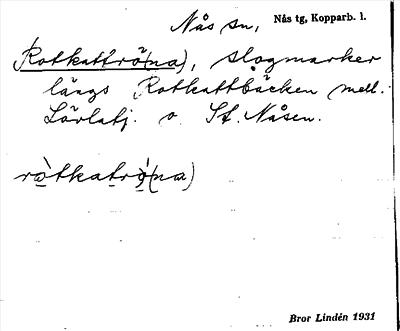 Nås sn, Nås tg, Kopparb. l.
Rotkattrö(na), slogmarker
längs Rotkattbäcken mell.
o. St. Nåsen.
Bror Lindén 1931